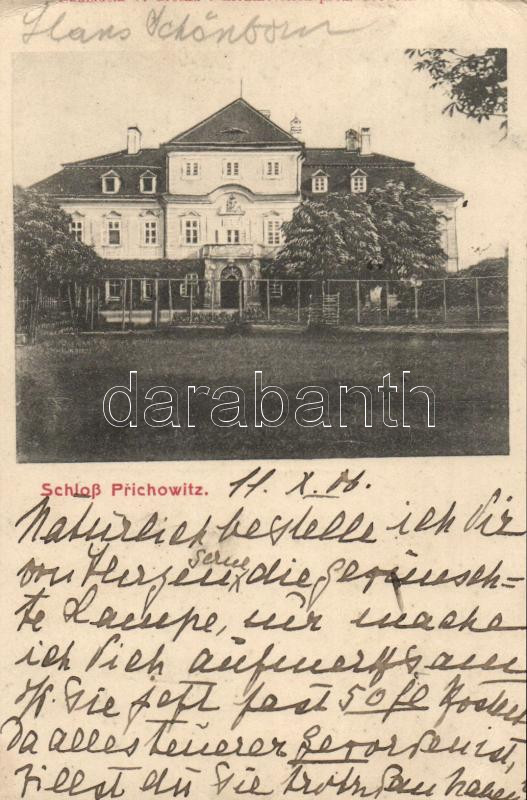 Hans Schönborn
darabanth
Schloß Přichowitz. 11. X. 06.
Natürlich bestelle ich Dir
von Herzen gerne die gewünsch=
te Lampe, nur mache
ich Dich aufmerksam
Sie jetzt fast 50 fl kostet
Da alles teuerer geworden ist,
willst du Sie trotzdem haben